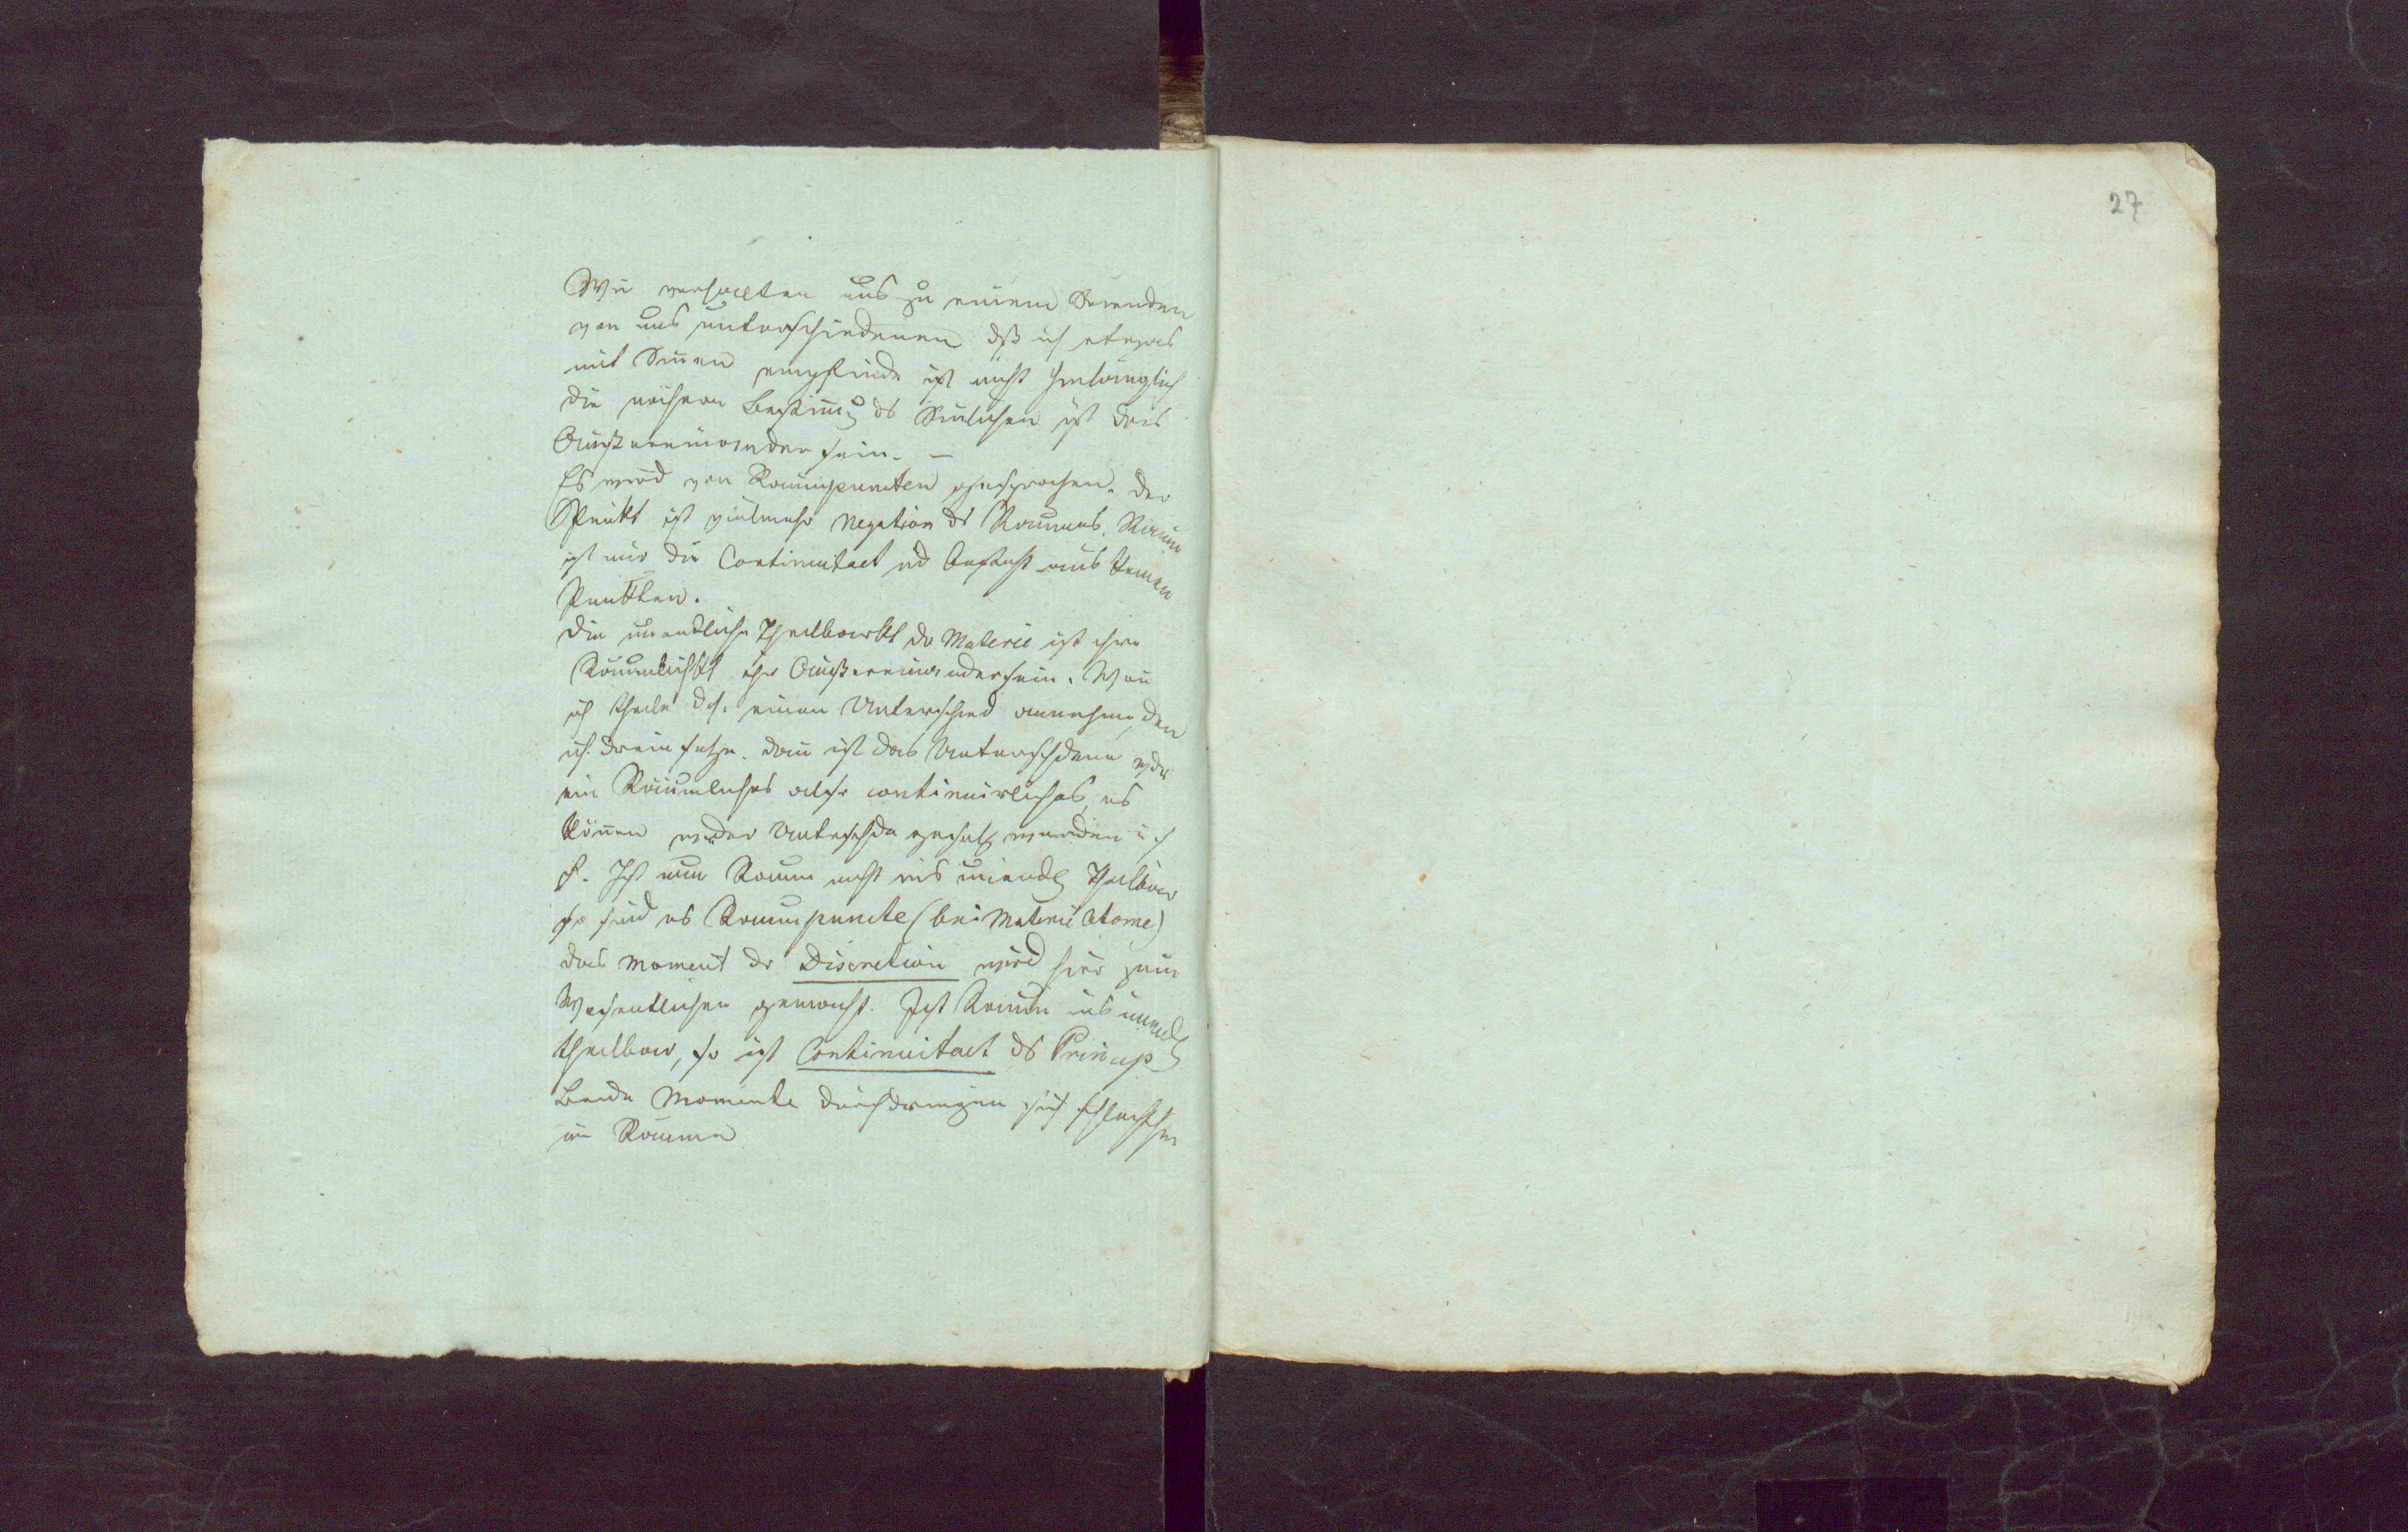 27
Wir verhalten uns zu einem Fremden
von uns unterschiedenen dß ich etwas
mit Sinen empfinde ist nicht hinlänglich
die nähere Bestimg ds Sinlichen ist das
Außereinandersein. —
Es wird von Raumpuncten gesprochen. der
Punkt ist vielmehr Negation ds Raumes. Raum
ist nur die Continuitaet nd besteht aus keinen
Punkten.
Die unendliche Theilbarkt dr Materie ist ihre
Räumlichkt ihr Außereinandersein. Wen
ich theile dh. einen Unterschied annehme, den
ich drein setze. dan ist das Unterschdene wdr
ein Räumliches also continuirliches, es
könen wdr Unterschde gesetzt werden u. s
f. Ist nun Raum nicht ins unendl theilbar
so sind es Raumpuncte (bei Materie Atome)
das Moment dr Discretion wird hier zum
Wesentlichen gemacht. Ist Raum ins unendl
theilbar, so ist Continuitaet ds Princip
Beide Momente durchdringen sich schlechthin
im Raume